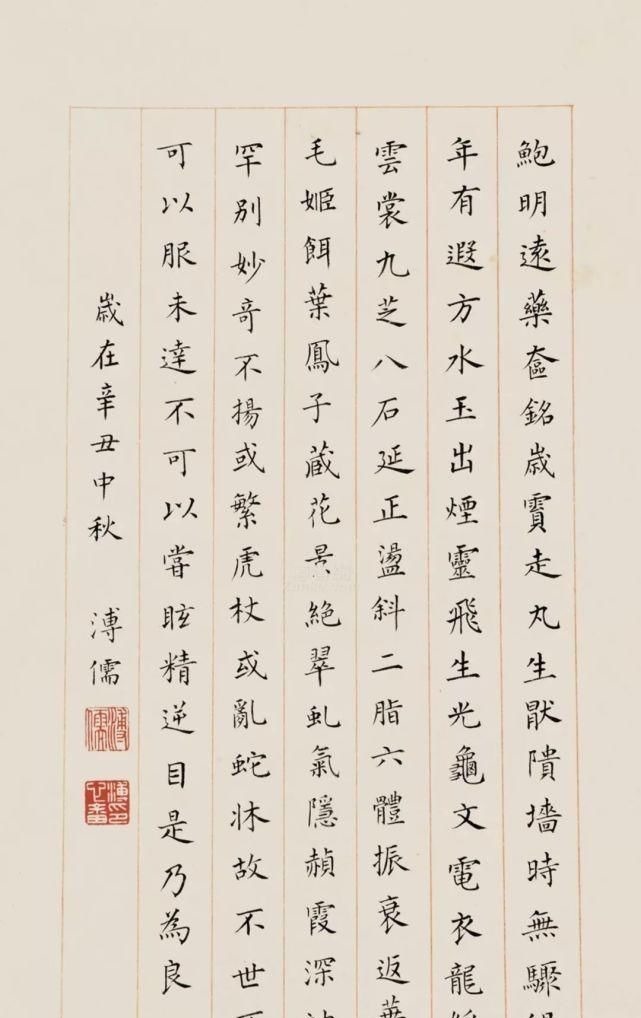 鮑明遠藥奩銘歲霣走丸生厭隤墻時無驟得
年有遐方水玉出煙靈飛生光龜文電衣龍
雲裳九芝八石延正盪斜二脂六體振衰返華
毛姬餌葉鳳子藏花景絕翠虬氣隱赬霞深
罕別妙奇不揚或繁虎杖或亂蛇牀故不世不
可以服未達不可以嘗眩精逆目是乃為良
歲在辛丑中秋
溥儒
溥儒
溥儒